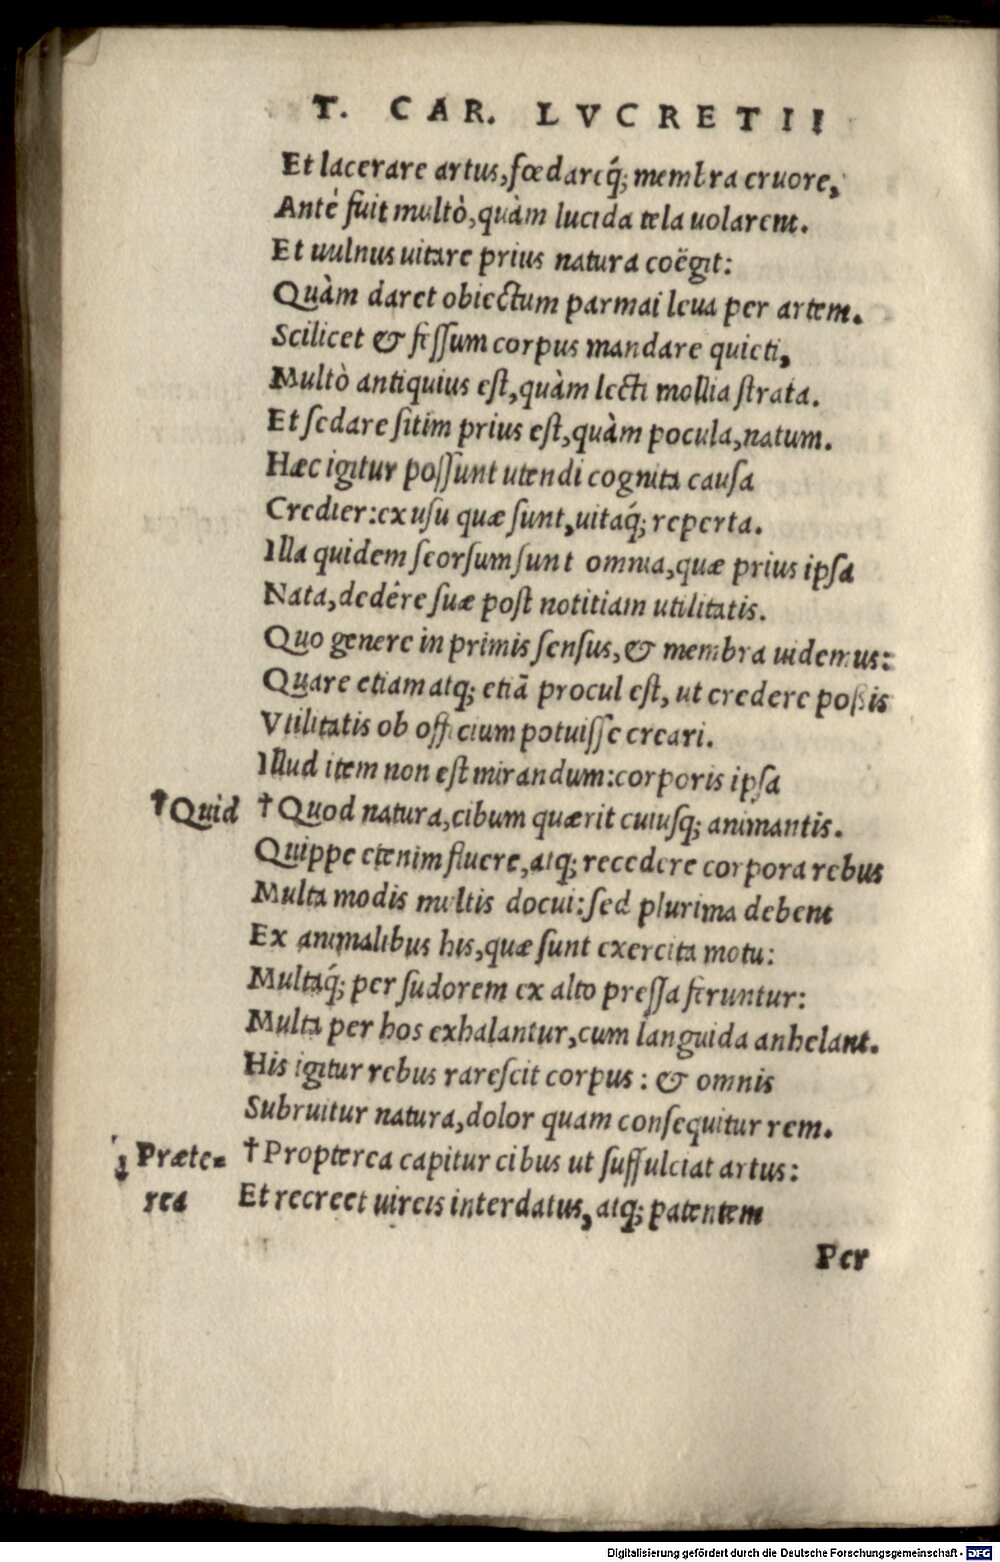 T. CAR. LVCRETII
Et lacerare artus, fœdareq́; membra cruore,
Antè fuit multò, quàm lucida tela uolarent.
Et uulnus uitare prius natura coëgit:
Quàm daret obiectum parmai leua per artem.
Scilicet & feſſum corpus mandare quieti,
Multò antiquius eſt, quàm lecti mollia ſtrata.
Et ſedare ſitim prius eſt, quàm pocula, natum.
Hæc igitur poſſunt utendi cognita cauſa
Credier: ex uſu quæ ſunt, uitaq́; reperta.
Illa quidem ſeorſum ſunt omnia, quæ prius ipſa
Nata, dedêre ſuæ poſt notitiam utilitatis.
Quo genere in primis ſenſus, & membra uidemus:
Quare etiam atq; etiā procul eſt, ut credere poßis
Vtilitatis ob officium potuiſſe creari.
Illud item non eſt mirandum: corporis ipſa
†Quid †Quod natura, cibum quærit cuiuſq; animantis.
Quippe etenim fluere, atq; recedere corpora rebus
Multa modis multis docui: ſed plurima debent
Ex animalibus his, quæ ſunt exercita motu:
Multaq́; per ſudorem ex alto preſſa feruntur:
Multa per hos exhalantur, cum languida anhelant.
His igitur rebus rareſcit corpus: & omnis
Subruitur natura, dolor quam conſequitur rem.
Præte= †Propterea capitur cibus ut ſuffulciat artus:
rea Et recreet uireis interdatus, atq; patentem
Per
Digitalisierung gefördert durch die Deutsche Forschungsgemeinschaft - DFG